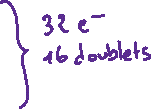 32 e⁻
16 doublets